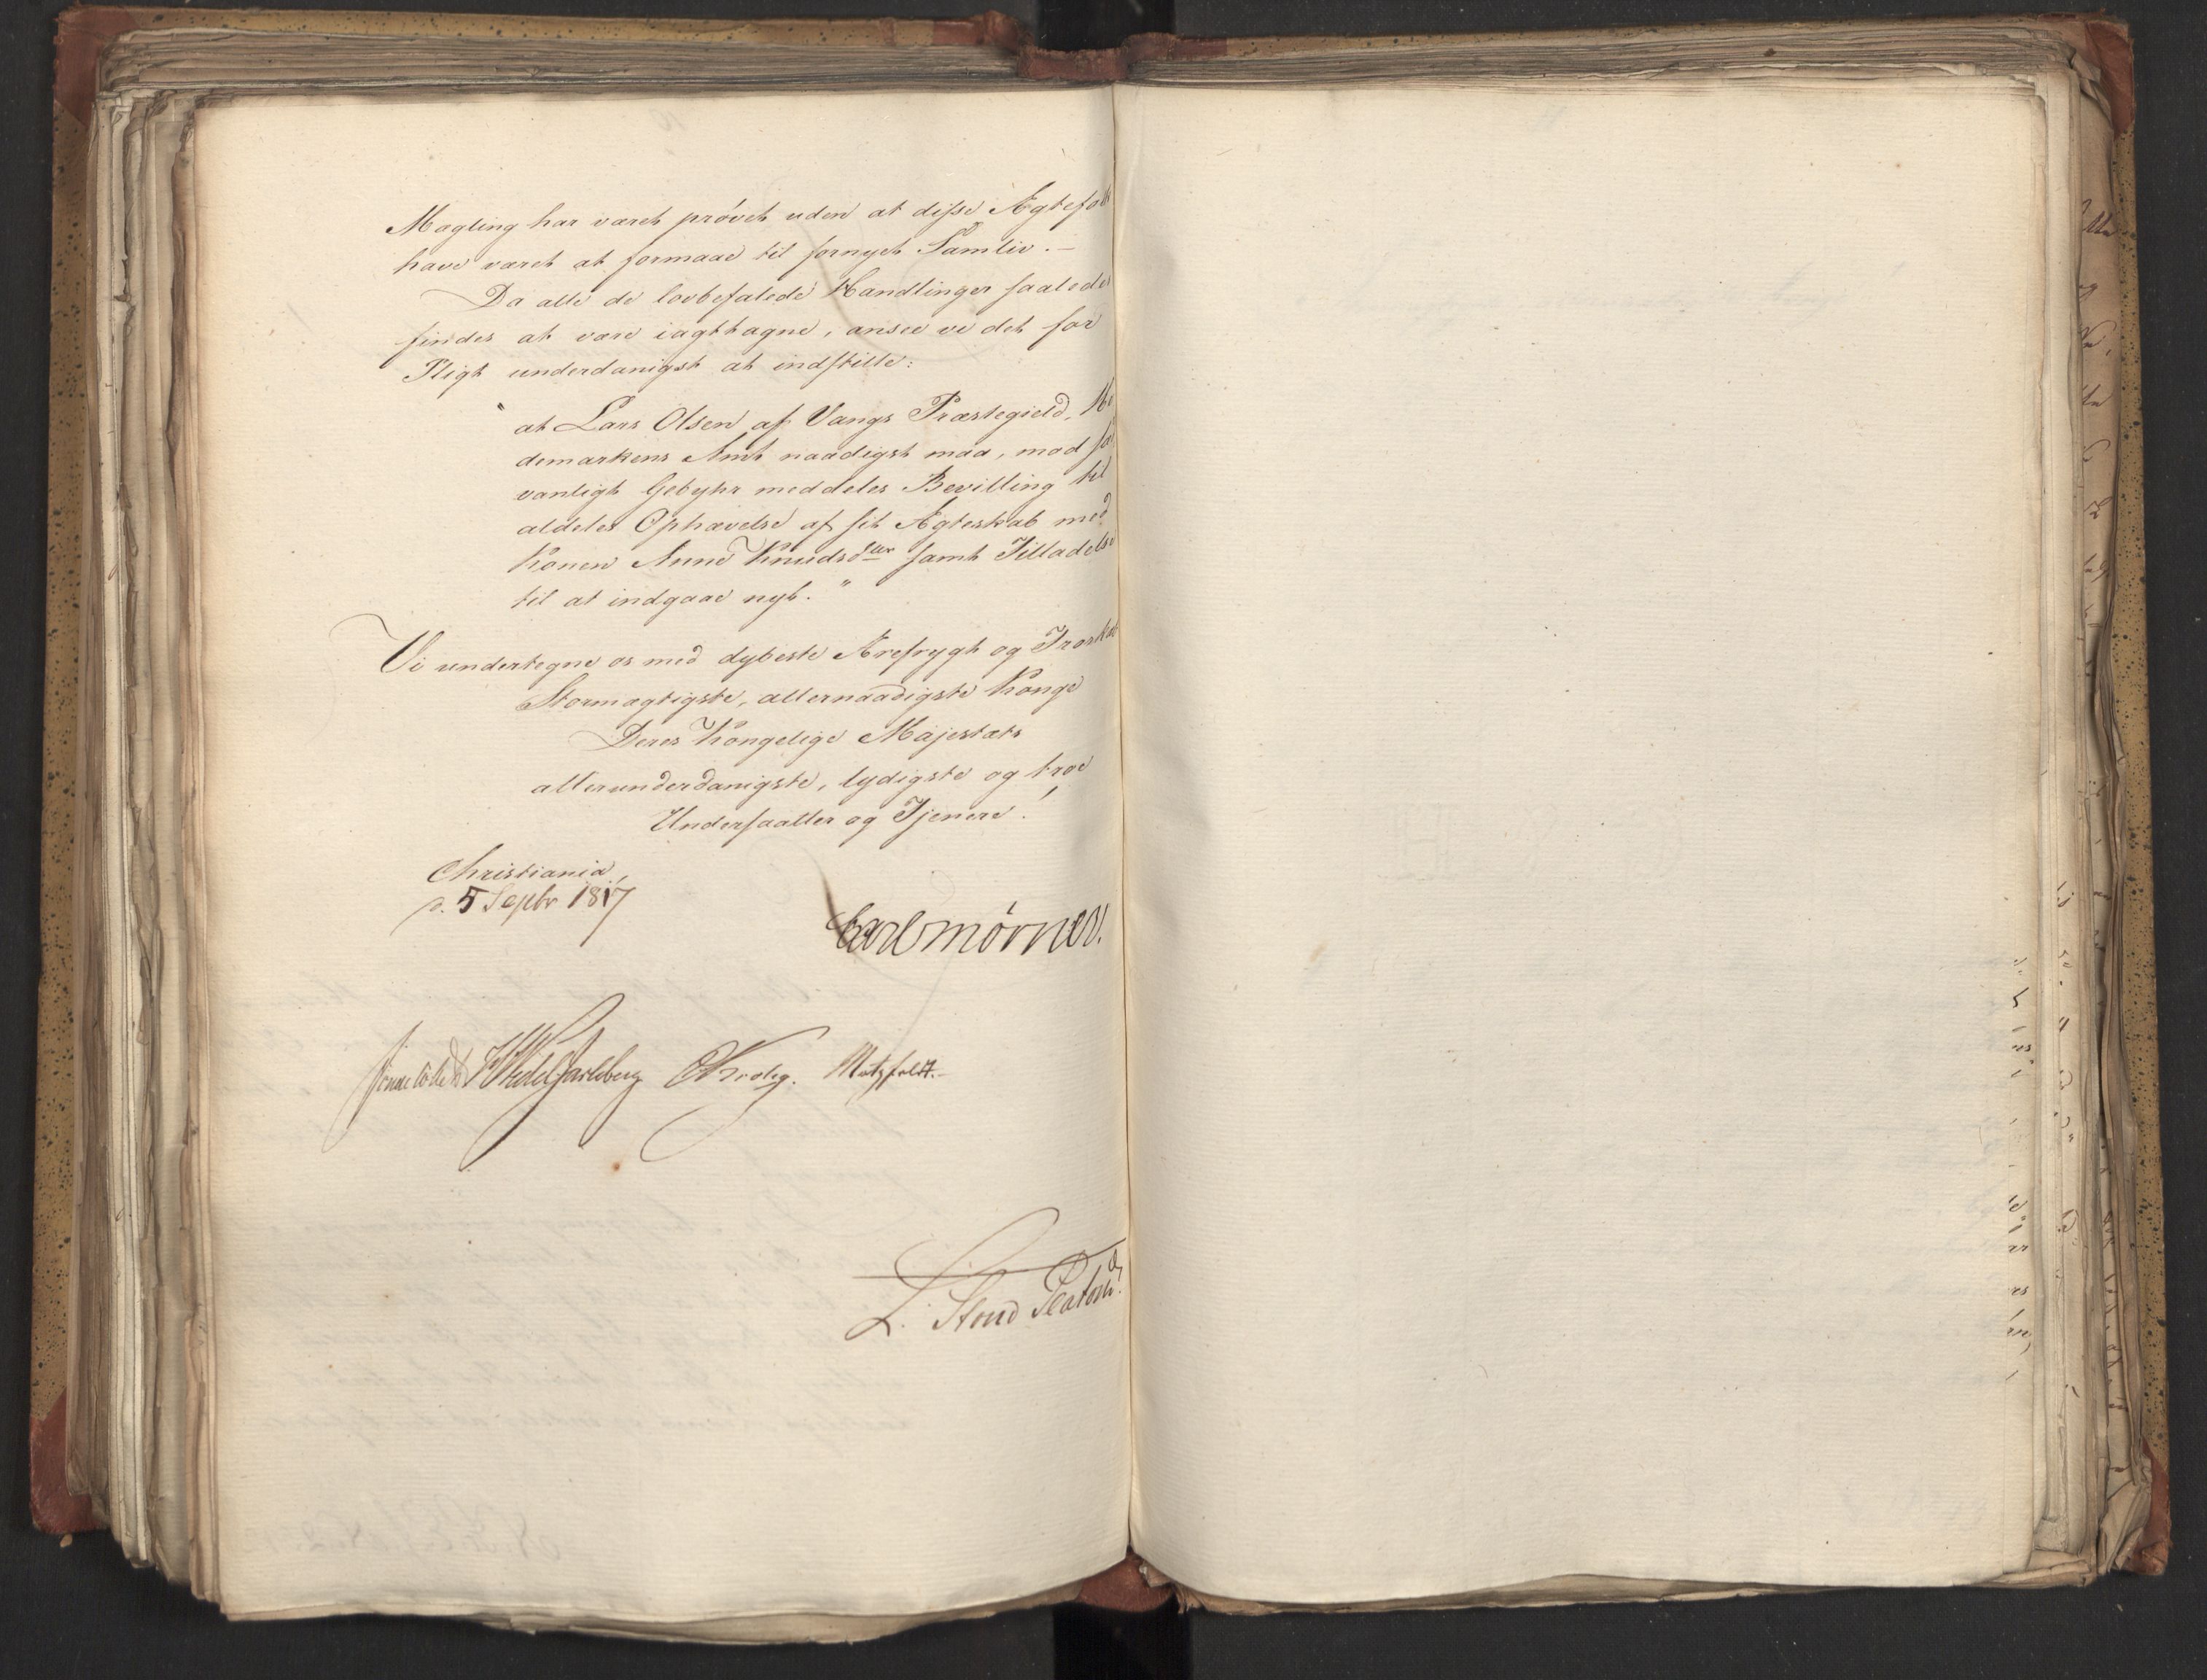 Mægling har været prøvet uden at disse Ægtefolk
have været at formaae til fornyet Samliv. —
Da alle de lovbefalede Handlinger saalede
findes at være iagttagne, ansee vi det for
Pligt underdanigst at indstille:
"at Lars Olsen af Vangs Præstegield, He
demarkens Amt naadigst maa, mod sæd
vanligt Gebyhr meddeles Bevilling til
aldeles Ophævelse af sit Ægteskab med
Konen Anne Knudsdtter samt Tilladelse
til at indgaae nyt."
Vi undertegne os med dybeste Ærefrygt og Troskab
Stormægtigste, allernaadigste Konge
Deres Kongelige Majestæts
allerunderdanigste, lydigste og troe
Undersaatter og Tjenere!
Christiania,
d. 5 Septbr 1817
Carl Mörner.
Jonas Collett HWedel Jarlsberg CKrohg. Motzfeldt.
L. Stoud Platou